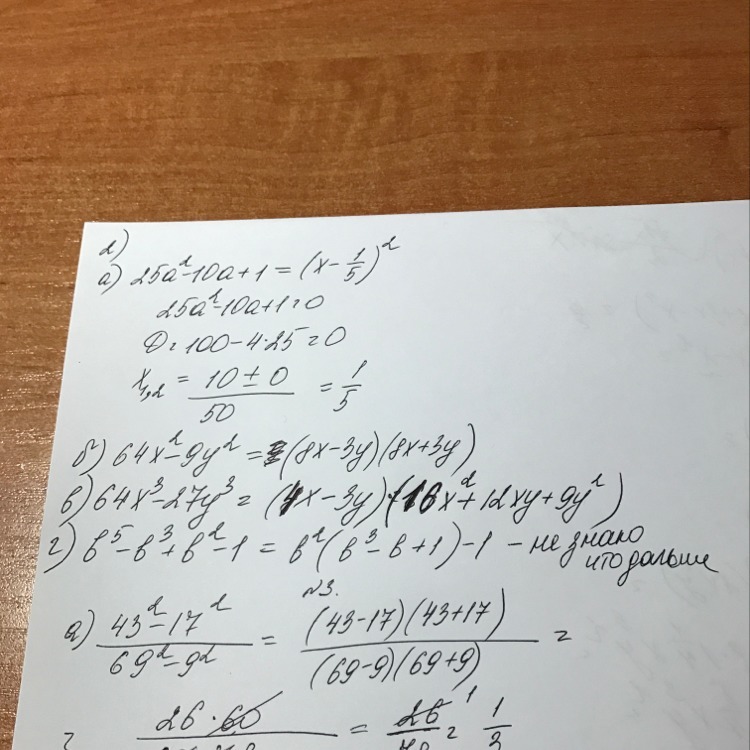 2)
а) 25a²-10a+1 = (x - 1/5)²
25a²-10a+1=0
D=100-4·25=0
x₁,₂ = (10 ± 0)/50 = 1/5
б) 64x²-9y² = (8x-3y)(8x+3y)
в) 64x³-27y³ = (4x-3y)·(16x²+12xy+9y²)
г) b⁵-b³+b²-1 = b²(b³-b+1)-1 - не знаю
что дальше
№3.
а) (43²-17²)/(69²-9²) = ((43-17)(43+17))/((69-9)(69+9)) =
26·60 = 26 1 = 1/3